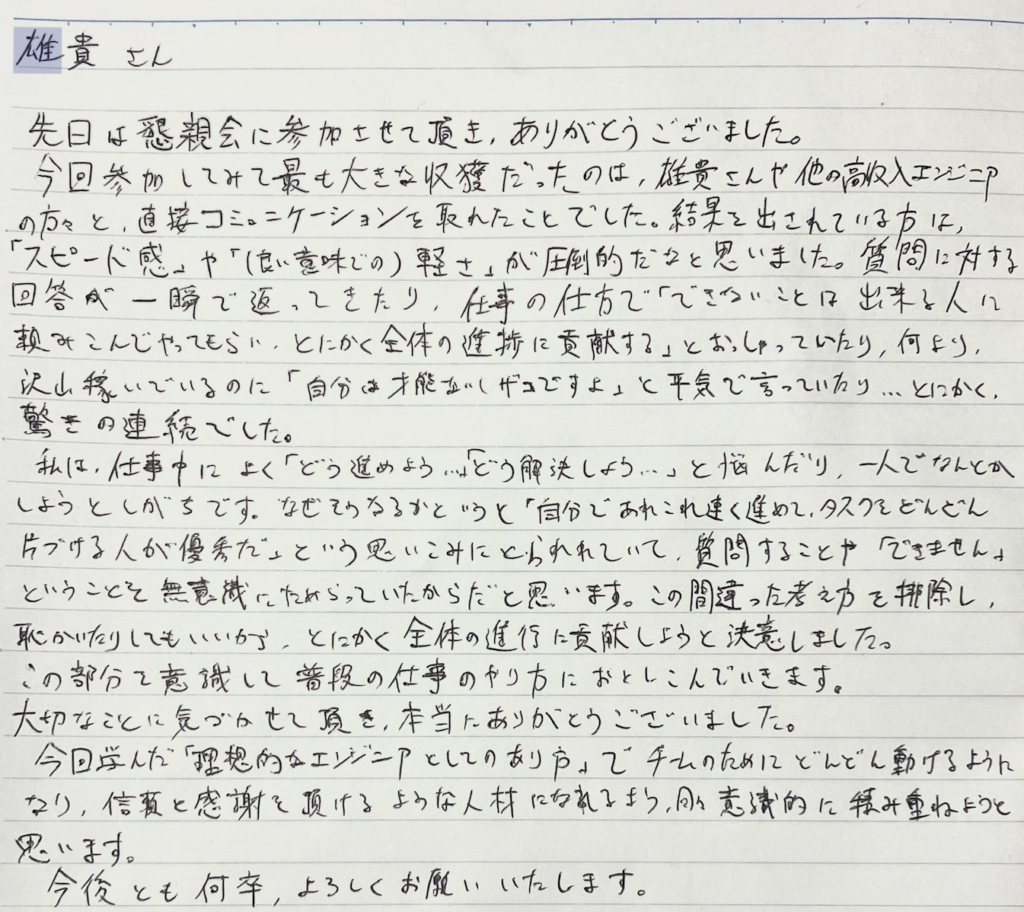 雄貴さん
先日は懇親会に参加させて頂き、ありがとうございました。
今回参加してみて最も大きな収獲だったのは、雄貴さんや他の高収入エンジニア
の方々と、直接コミュニケーションを取れたことでした。結果を出されている方は、
「スピード感」や「(良い意味での)軽さ」が圧倒的だなと思いました。質問に対する
回答が一瞬で返ってきたり、仕事の仕方で「できないことは出来る人に
頼みこんでやってもらい、とにかく全体の進捗に貢献する」とおっしゃっていたり、何より、
沢山稼いでいるのに「自分は才能ないしザコですよ」と平気で言っていたり…とにかく、
驚きの連続でした。
私は、仕事中によく「どう進めよう…」「どう解決しよう…」と悩んだり、一人でなんとか
しようとしがちです。なぜそうなるかというと「自分であれこれ速く進めて、タスクをどんどん
片づける人が優秀だ」という思いこみにとらわれていて、質問することや「できません」
ということを無意識にためらっていたからだと思います。この間違った考え方を排除し、
恥かいたりしてもいいから、とにかく全体の進行に貢献しようと決意しました。
この部分を意識して普段の仕事のやり方におとしこんでいきます。
大切なことに気づかせて頂き、本当にありがとうございました。
今回学んだ「理想的なエンジニアとしてのあり方」でチームのためにどんどん動けるように
なり、信頼と感謝を頂けるような人材になれるよう、日々意識的に積み重ねようと
思います。
今後とも何卒、よろしくお願いいたします。